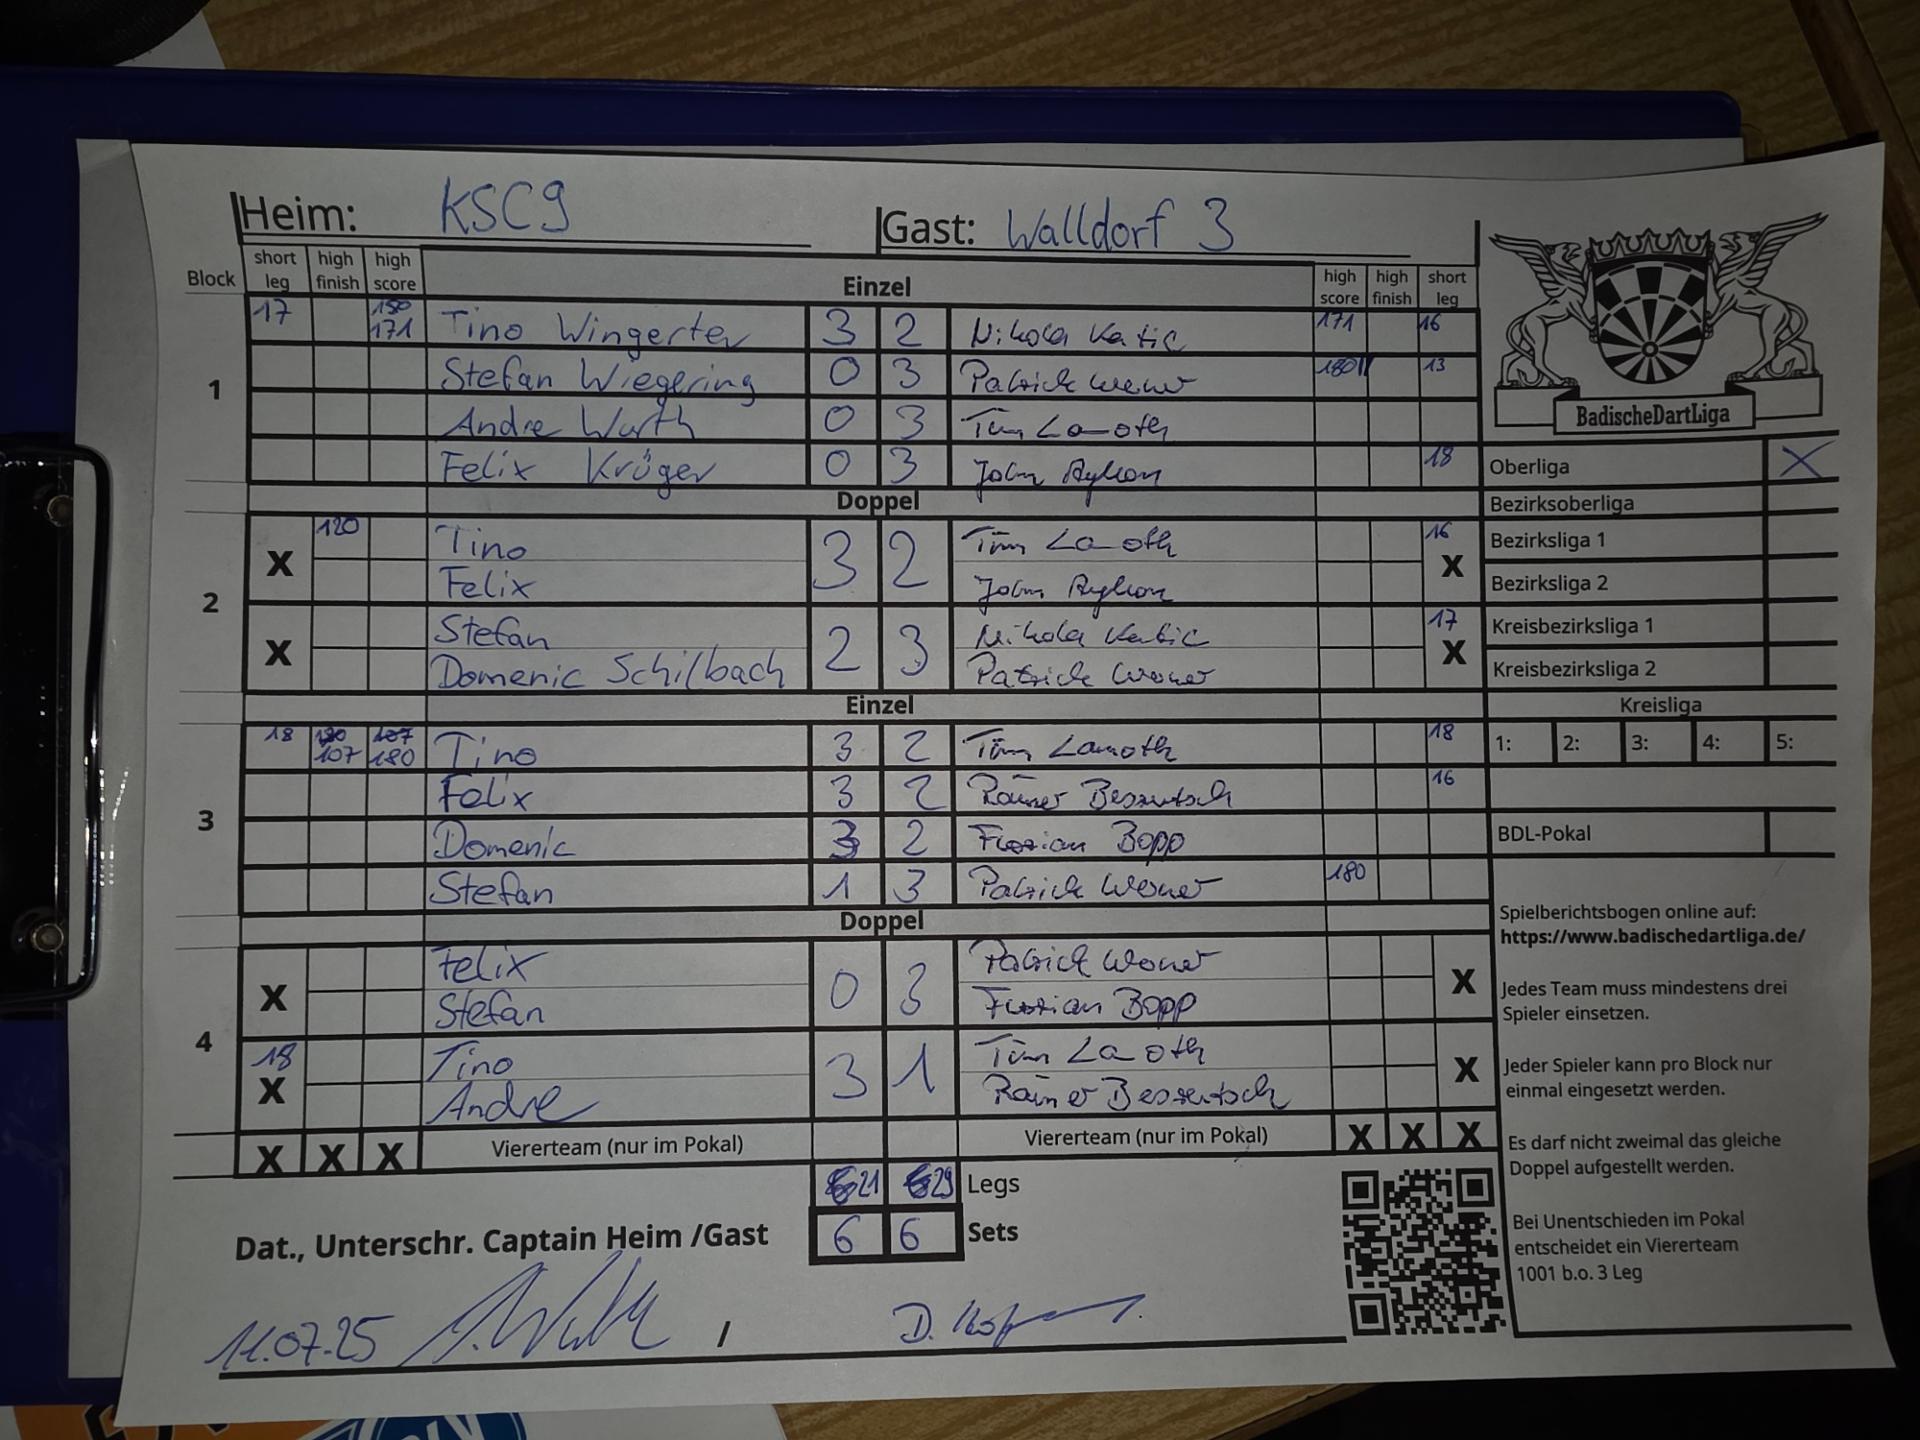 Heim: KSC9 Gast: Walldorf 3
Block short leg high finish high score Einzel high score high finish short leg
1
17 180 171 Tino Wingerter 3 2 Nikola Katic 171 16
Stefan Wiegering 0 3 Patrick Werner 180 II 13
Andre Wurth 0 3 Tim Lamoth
Felix Krüger 0 3 John 18
Doppel
2
X 120 Tino 3 2 Tim Lamoth 16 X
Felix John
X Stefan 2 3 Nikola Katic 17 X
Domenic Schilbach Patrick Werner
Einzel
3
18 107 180 Tino 3 2 Tim Lamoth 18
Felix 3 2 Rainer 16
Domenic 3 2 Florian Bopp
Stefan 1 3 Patrick Werner 180
Doppel
4
X Felix 0 3 Patrick Werner X
Stefan Florian Bopp
18 X Tino 3 1 Tim Lamoth X
Andre Rainer
X X X Viererteam (nur im Pokal) Viererteam (nur im Pokal) X X X
21 29 Legs
6 6 Sets
Dat., Unterschr. Captain Heim /Gast
11.07.25 /
BadischeDartLiga
Oberliga X
Bezirksoberliga
Bezirksliga 1
Bezirksliga 2
Kreisbezirksliga 1
Kreisbezirksliga 2
Kreisliga
1: 2: 3: 4: 5:
BDL-Pokal
Spielberichtsbogen online auf:
https://www.badischedartliga.de/
Jedes Team muss mindestens drei
Spieler einsetzen.
Jeder Spieler kann pro Block nur
einmal eingesetzt werden.
Es darf nicht zweimal das gleiche
Doppel aufgestellt werden.
Bei Unentschieden im Pokal
entscheidet ein Viererteam
1001 b.o. 3 Leg